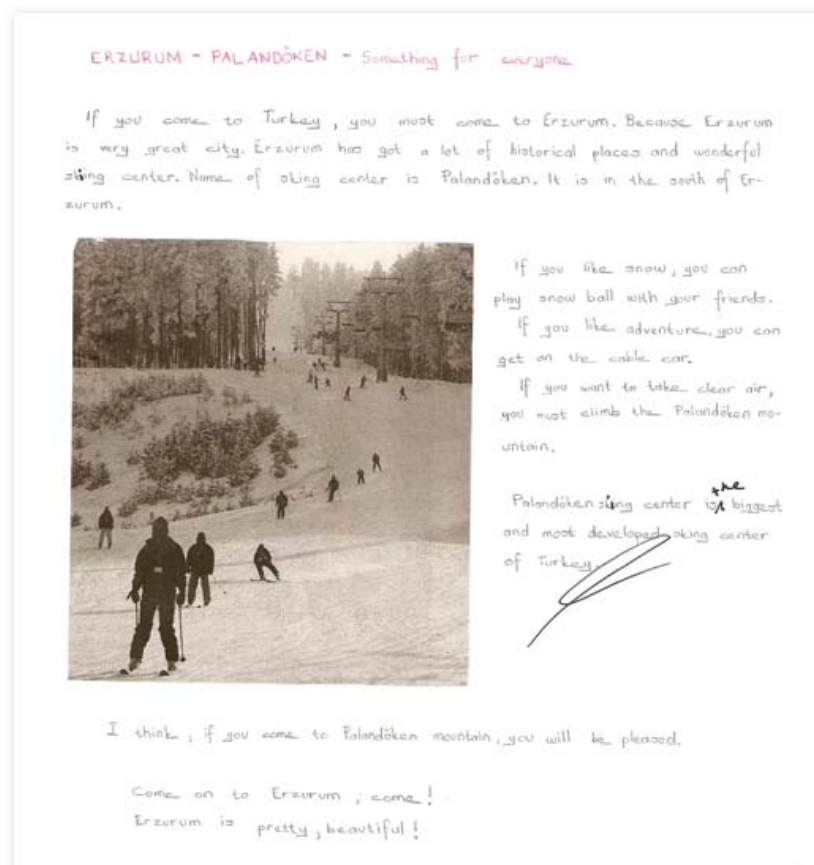 ERZURUM - PALANDÖKEN - Something for everyone
If you come to Turkey, you must come to Erzurum. Because Erzurum
is very great city. Erzurum has got a lot of historical places and wonderful
skiing center. Name of sking center is Palandöken. It is in the south of Er-
zurum.
If you like snow, you can
play snow ball with your friends.
If you like adventure, you can
get on the cable car.
If you want to take clear air,
you must climb the Palandöken mo-
untain.
Palandöken skiing center is the biggest
and most developed sking center
of Turkey.
I think, if you come to Palandöken mountain, you will be pleased.
Come on to Erzurum, come!
Erzurum is pretty, beautiful!